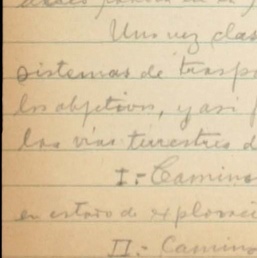 Una vez clas
sistemas de trasp
los objetivos, y asi f
las vías terrestres d
I.- Camino
en estado de exploraci
II.- Camino